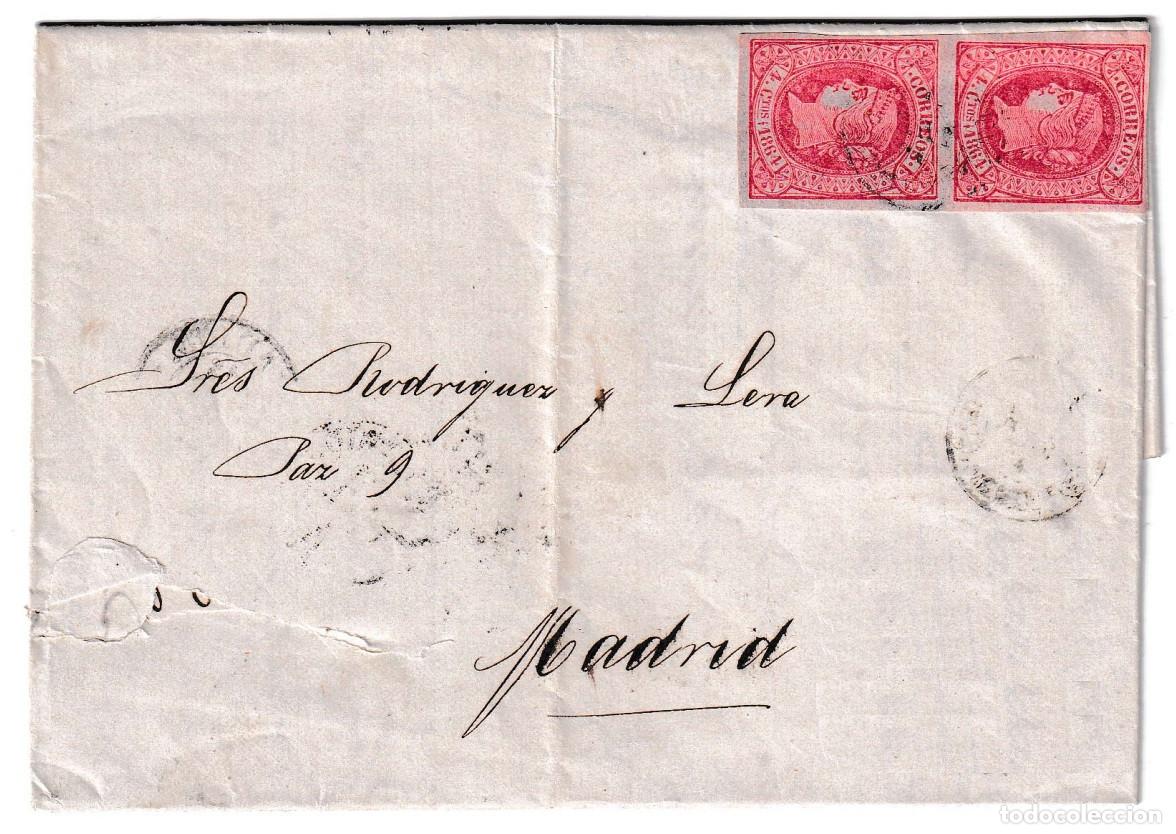 CORREOS. 4 CTOS 1864
CORREOS. 4 CTOS 1864
Sres Rodriguez y Lera
Paz 9
Madrid
todocoleccion